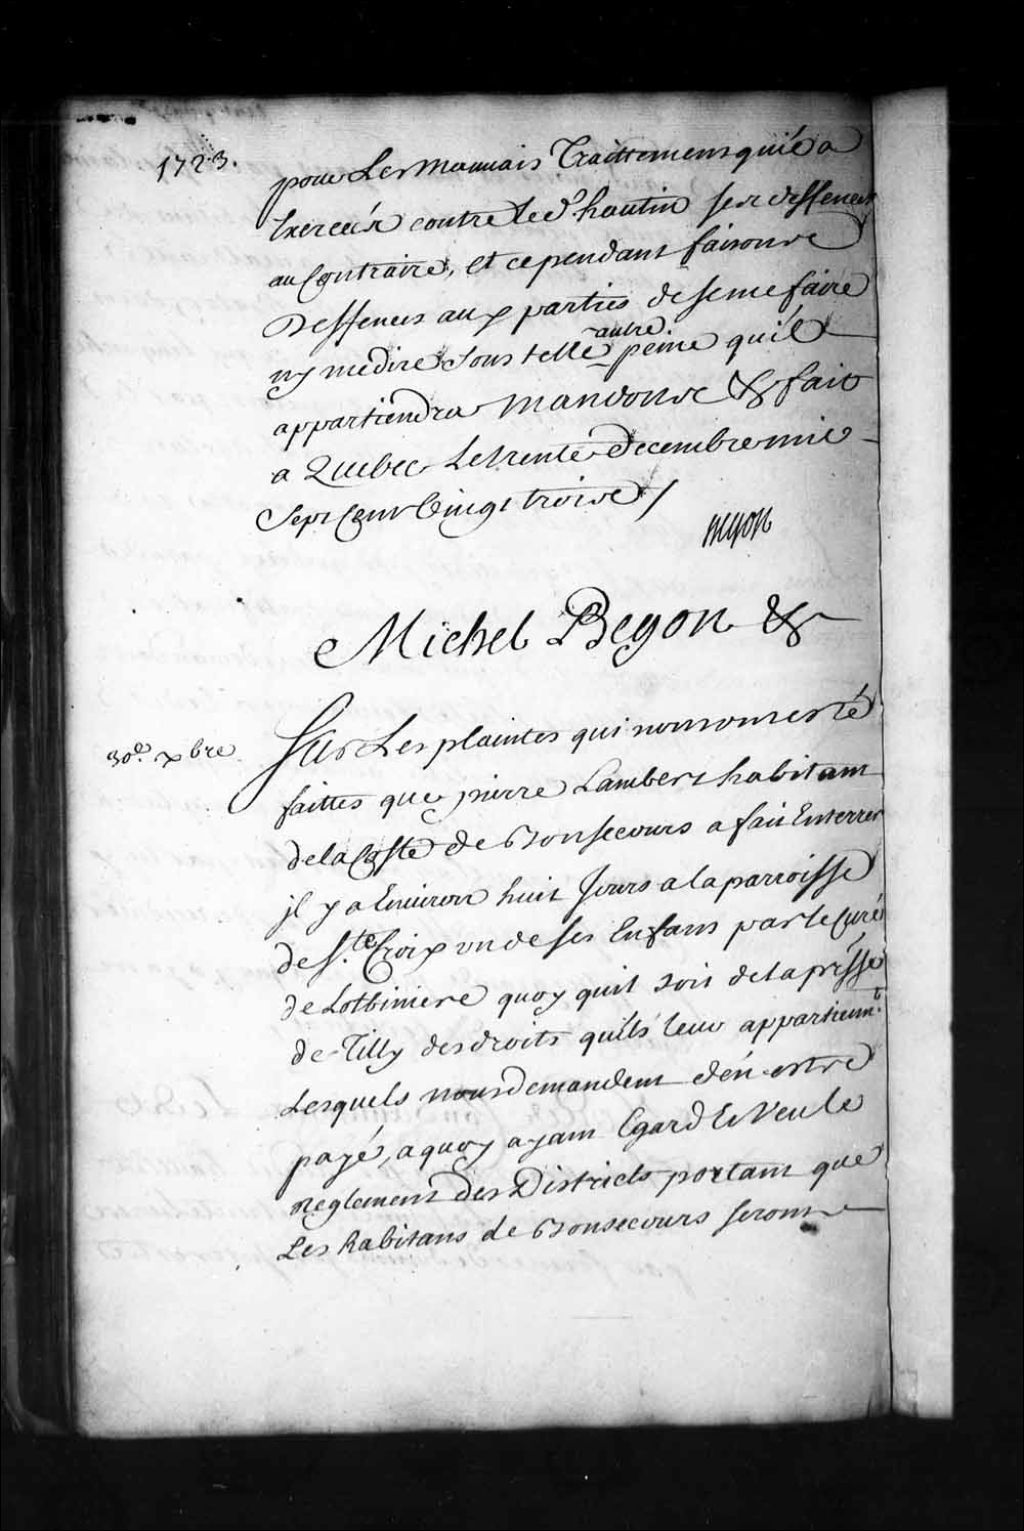 1723.
pour Les mauuais Traittemens quil a
Exercéz contre led. hautin ses deffences
au Contraire, et cependant faisons
Deffences aux parties de se mefaire
ny medire Sous telle autre peine quil
appartiendra mandons &c fait
a Quebec Le trente decembre mil
Sept Cent Vingt trois /
Begon
Michel Begon &c
30e. xbre
Sur Les plaintes qui nous ont esté
faittes que pierre Lambert habitant
de la Coste de Bonsecours a fait Enterrer
jl y a Enuiron huit Jours a la parroisse
de Ste. Croix un de ses Enfans par le Curé
de Lotbiniere quoy quil soit de la prsse
de Tilly des droits quils leur appartienn.t
Lesquels nous demandent d'en estre
payé, a quoy ayant Egard Et Veu le
Reglement des Districts portant que
Les habitans de Bonsecours seront